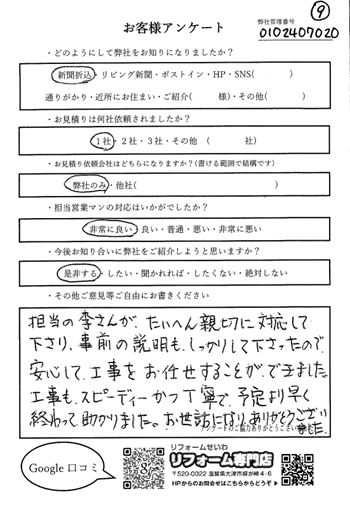 ⑨
お客様アンケート
弊社管理番号
0102407020
・どのようにして弊社をお知りになりましたか？
新聞折込・リビング新聞・ポストイン・HP・SNS(　　　)
通りがかり・近所にお住まい・ご紹介(　　　様)・その他(　　　)
・お見積りは何社依頼されましたか？
1社・2社・3社・その他　(　　　社)
・お見積り依頼会社はどちらになりますか？(書ける範囲で結構です)
弊社のみ・他社(　　　)
・担当営業マンの対応はいかがでしたか？
非常に良い・良い・普通・悪い・非常に悪い
・今後お知り合いに弊社をご紹介しようと思いますか？
是非する・したい・聞かれれば・したくない・絶対しない
・その他ご意見等ご自由にお書きください
担当の李さんが、たいへん親切に対応して
下さり、事前の説明も、しっかりして下さったので
安心して、工事をお任せすることができました。
工事も、スピーディーかつ丁寧で、予定より早く
終わって助かりました。お世話になりありがとうござい
ました。
アンケートのご協力ありがとうござい
Google 口コミ
リフォームせいわ
リフォーム専門店
〒520-0022 滋賀県大津市柳が崎4-6
HPからのお問合せはこちらからどうぞ▶